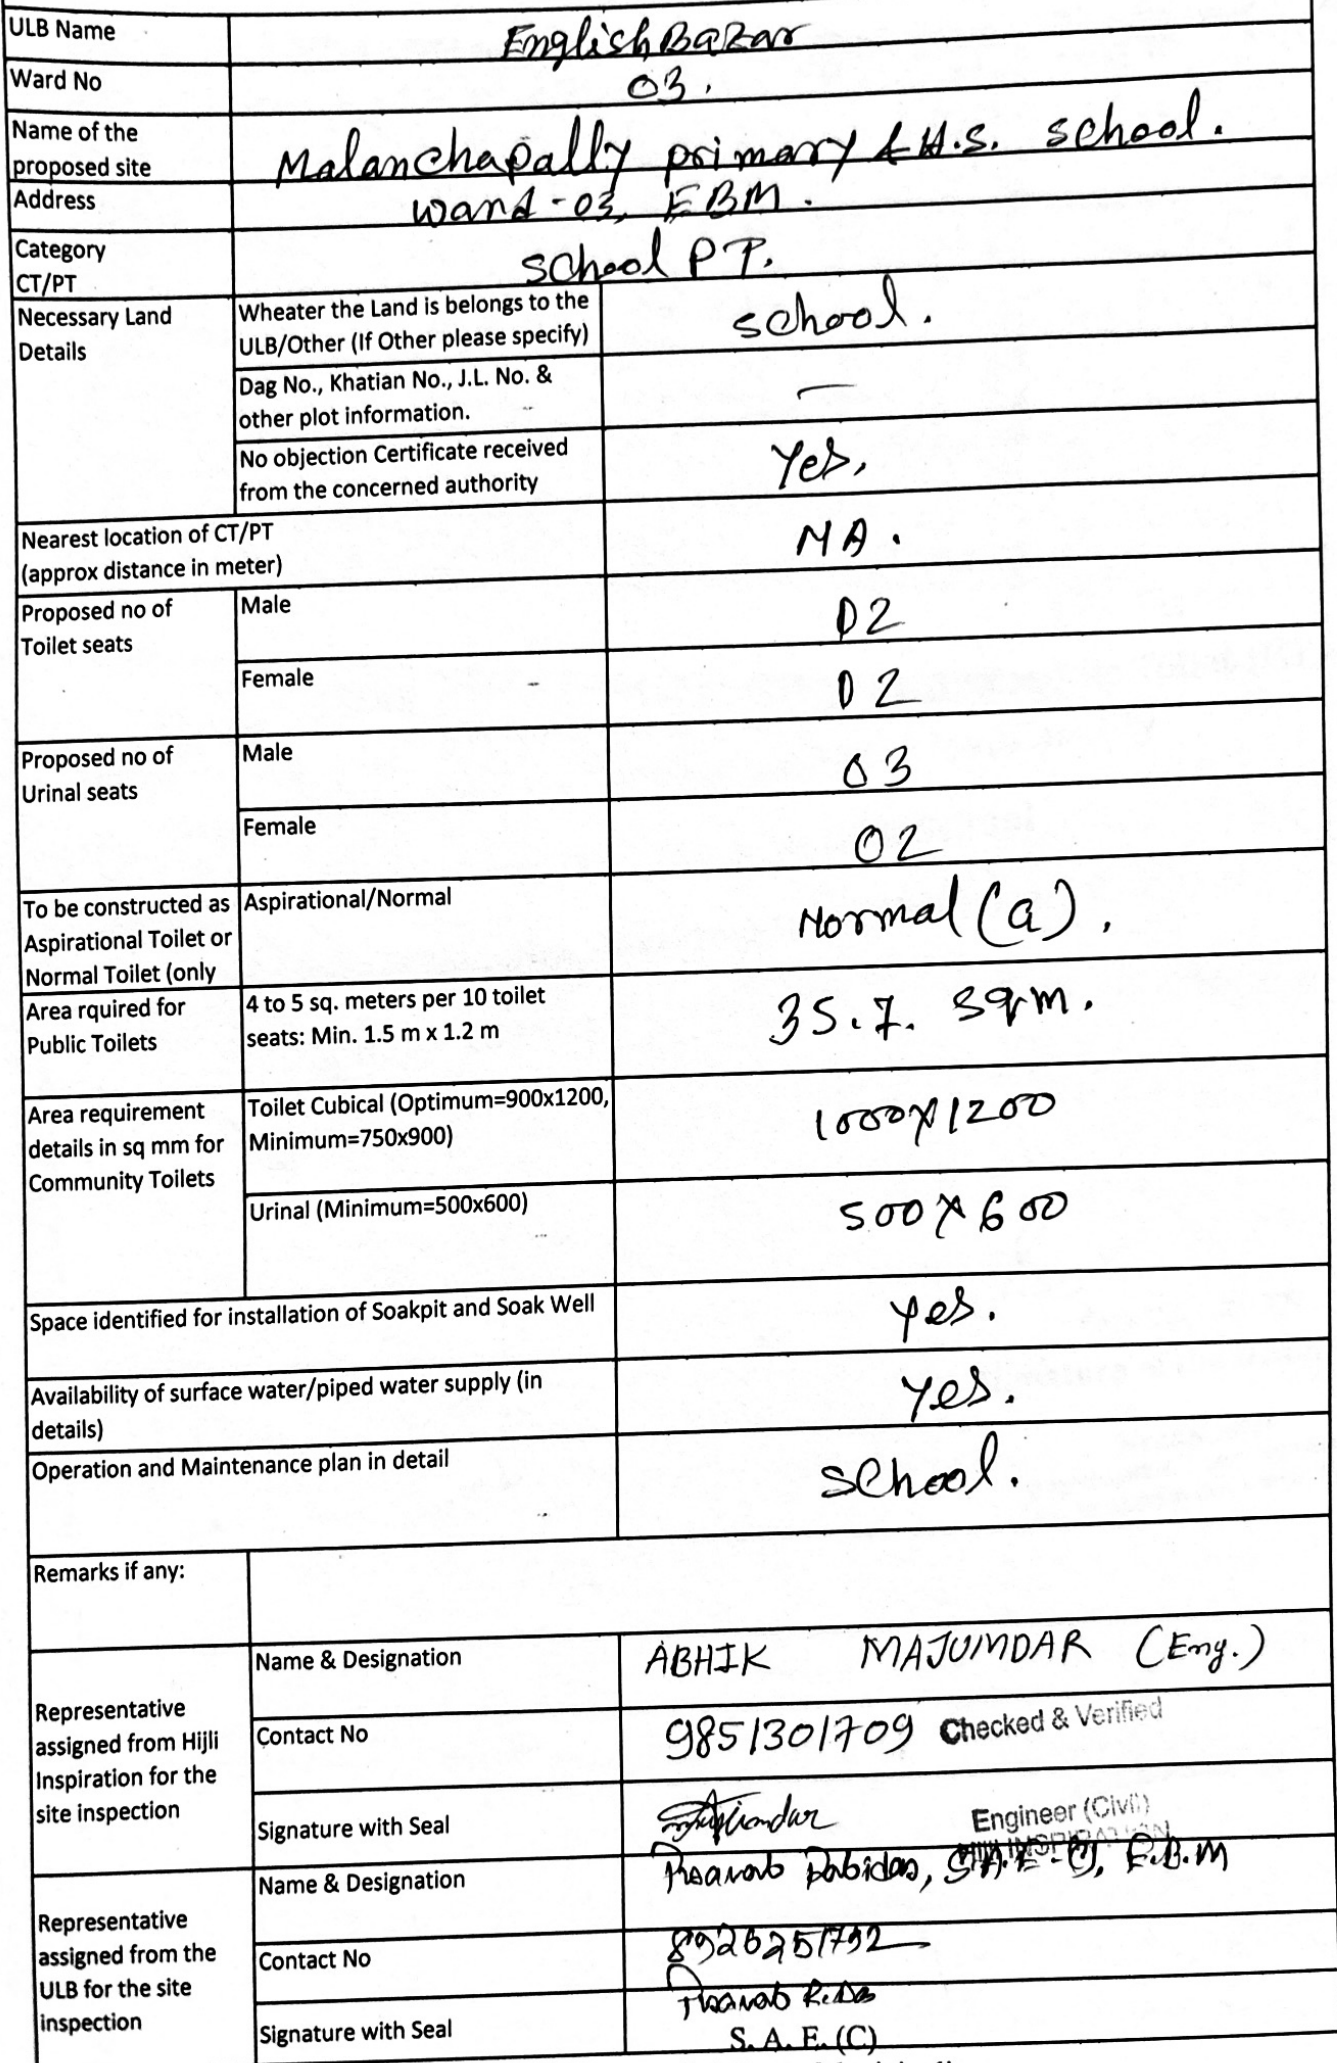 ULB Name
EnglishBazar
Ward No
03.
Name of the
proposed site
Malanchapally primary & H.S. school.
Address
Ward-03, EBM.
Category
CT/PT
School PT.
Necessary Land
Details
Wheater the Land is belongs to the
ULB/Other (If Other please specify)
School.
Dag No., Khatian No., J.L. No. &
other plot information.
—
No objection Certificate received
from the concerned authority
Yes.
Nearest location of CT/PT
(approx distance in meter)
NA.
Proposed no of
Toilet seats
Male
02
Female
02
Proposed no of
Urinal seats
Male
03
Female
02
To be constructed as
Aspirational Toilet or
Normal Toilet (only
Aspirational/Normal
Normal (a).
Area rquired for
Public Toilets
4 to 5 sq. meters per 10 toilet
seats: Min. 1.5 m x 1.2 m
35.7. sqm.
Area requirement
details in sq mm for
Community Toilets
Toilet Cubical (Optimum=900x1200,
Minimum=750x900)
1000x1200
Urinal (Minimum=500x600)
500x600
Space identified for installation of Soakpit and Soak Well
Yes.
Availability of surface water/piped water supply (in
details)
Yes.
Operation and Maintenance plan in detail
School.
Remarks if any:
Representative
assigned from Hijli
Inspiration for the
site inspection
Name & Designation
ABHIK MAJUMDAR (Eng.)
Contact No
9851301709 Checked & Verified
Signature with Seal
Engineer (Civil)
INSPIRATION
Representative
assigned from the
ULB for the site
inspection
Name & Designation
Pranab Dabidas, S.A.E-C, E.B.M
Contact No
8926251792
Signature with Seal
Pranab
S. A. E. (C)